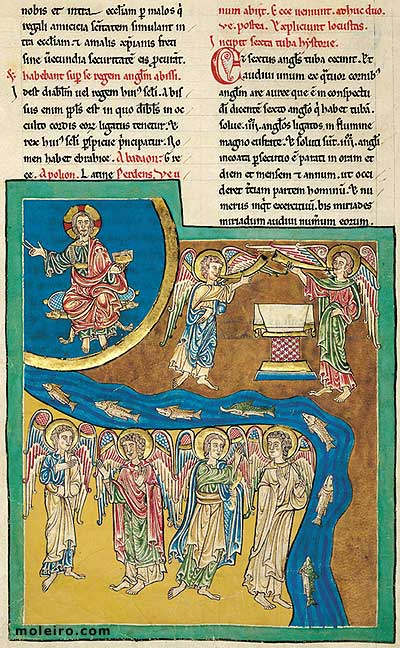 nobis et intra ecclīam ꝑ malos q̄
regali amicicia sc̄itatem simulant in
ta ecclīam ⁊ amalis xp̄ianis freti
sine uecundia securitatē eis p̄cutāt.
habebant sup se regem anglm̄ abissi.
Idest diablm̄ uel regem huiꝰ scłi. Abis
sus enim pp̄ls est in quo diblꝰ in oc
culto cordis eorꝝ ligatus tenetur. ⁊
rex huiꝰ scłi ꝑspicue p̄ncipatur. No
men habet ebraice. Abadaon: Gre
ce. Apolion. Latine Perdens, Ve u
num abijt. E ecce ueniunt. adhuc duo.
ve. postea. Expliciunt locustas.
Incipit sexta tuba hystorie.
Et sextus angl̄s tuba cecinit. Et
audiui unum ex q̄tuor cornibꝰ
anglm̄ are auree que ē in conspectu
dī dicentē sexto anglo q̄ habet tubā.
solue .iiii. angłos ligatos in flumine
magno eufrate. ⁊ soluti sūt .iiii. angłi
⁊ diem ⁊ mensem ⁊ annum. ut occi
deret tc̄iam partem hominū. Et nu
merus inqt exercituū. bis miriades
miriadum audiui num̄um eorum.
moleiro.com